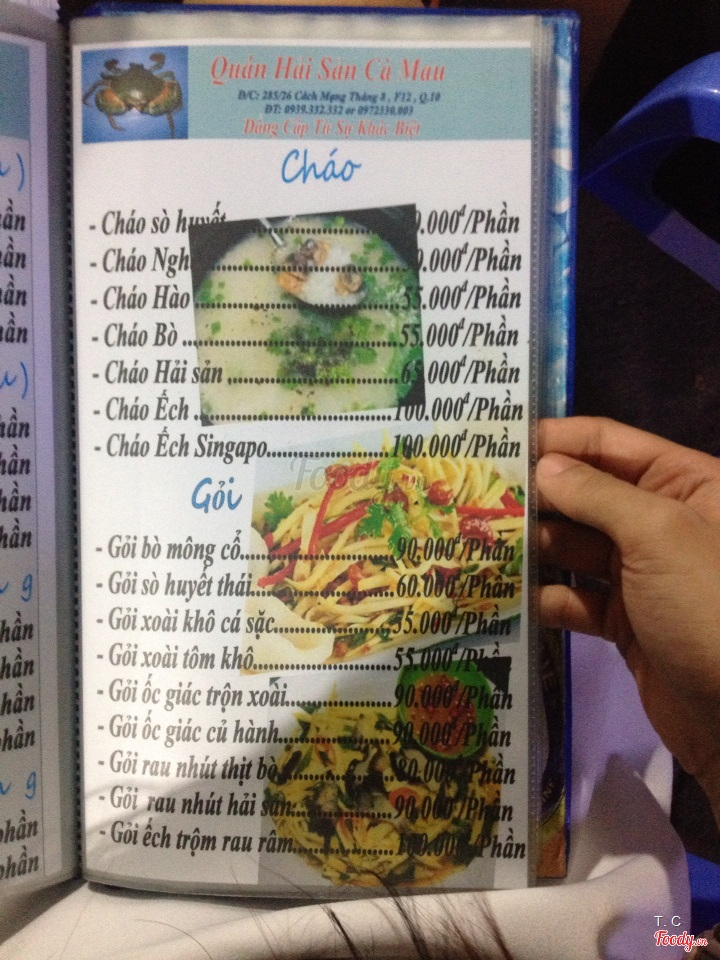 Quán Hải Sản Cà Mau
Đ/C: 285/26 Cách Mạng Tháng 8 , F12 , Q.10
ĐT: 0939.332.332 or 0972330.003
Đẳng Cấp Từ Sự Khác Biệt
Cháo
- Cháo sò huyết 0.000đ/Phần
- Cháo Ngh 0.000đ/Phần
- Cháo Hào 55.000đ/Phần
- Cháo Bò 55.000đ/Phần
- Cháo Hải sản 65.000đ/Phần
- Cháo Ếch 100.000đ/Phần
- Cháo Ếch Singapo 100.000đ/Phần
Foody.vn
Gỏi
- Gỏi bò mông cổ 90.000đ/Phần
- Gỏi sò huyết thái 60.000đ/Phần
- Gỏi xoài khô cá sặc 55.000đ/Phần
- Gỏi xoài tôm khô 55.000đ/Phần
- Gỏi ốc giác trộn xoài 90.000đ/Phần
- Gỏi ốc giác củ hành 90.000đ/Phần
- Gỏi rau nhút thịt bò 80.000đ/Phần
- Gỏi rau nhút hải sản 90.000đ/Phần
- Gỏi ếch trộm rau râm 100.000đ/Phần
T. C
Foody.vn